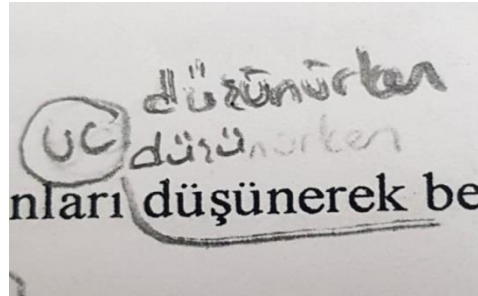 düşünürken
UC düşünürken
nları düşünerek be